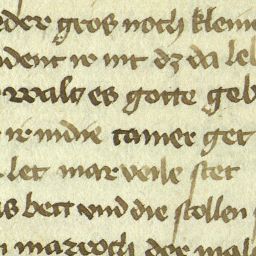 eder gros noch klein
ndent ir nit dz da leb
walt es gotte geb
ir indie camer get
let mar veile stet
s bett vnd die stollen
n marroch der mal